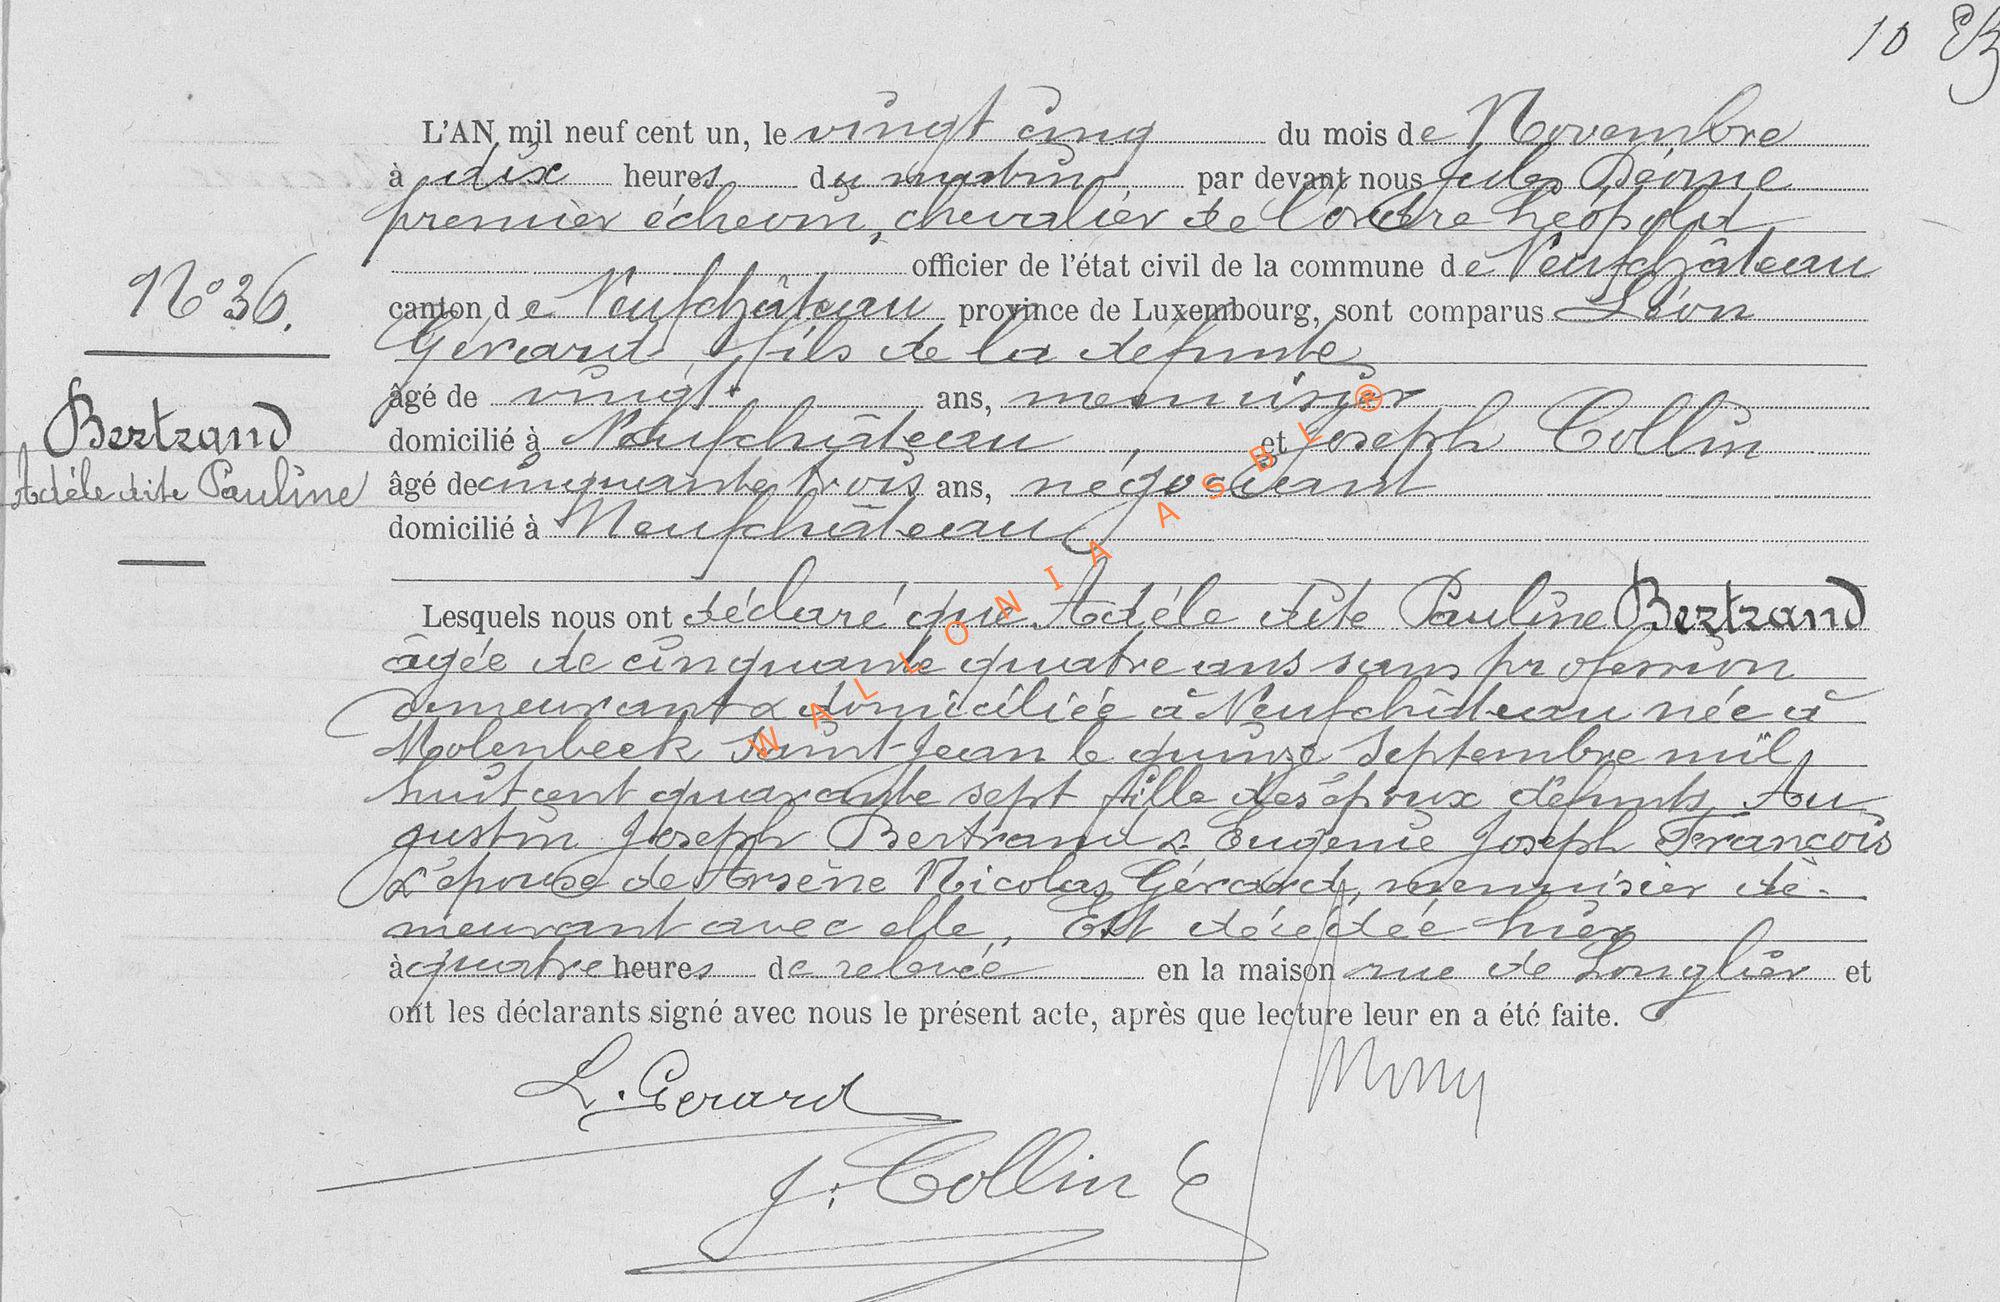 10
L'AN mil neuf cent un, le vingt cinq du mois de Novembre
à dix heures du matin, par devant nous Jules
premier échevin, chevalier de l'ordre Léopold
officier de l'état civil de la commune de Neufchâteau
N° 36.
canton de Neufchâteau province de Luxembourg, sont comparus Léon
Gérard, fils de la défunte
âgé de vingt ans, menuisier
Bertrand
domicilié à Neufchâteau, et Joseph Collin
Adèle dite Pauline
âgé de cinquante trois ans, négociant
domicilié à Neufchâteau
Lesquels nous ont déclaré que Adèle dite Pauline Bertrand
âgée de cinquante quatre ans sans profession
demeurant & domiciliée à Neufchâteau née à
Molenbeek Saint-Jean le quinze septembre mil
huit cent quarante sept fille des époux défunts Au
gustin Joseph Bertrand & Eugénie Joseph François
& épouse de Arsène Nicolas Gérard, menuisier de-
meurant avec elle, Est décédée hier
à quatre heures de relevée en la maison rue de Longlier et
ont les déclarants signé avec nous le présent acte, après que lecture leur en a été faite.
L. Gerard
J. Collin
WALLONIA ASBL ®